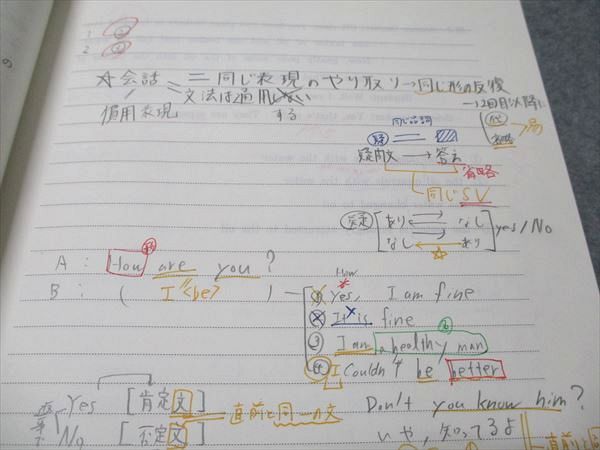 1 ②
2 ④
☆会話 = 同じ表現のやり取り→同じ形の反復
慣用表現 文法は通用しない
する
→2回目以降に
代
省略
同じ品詞
疑
疑問文 → 答え
省略
同じSV
あり なし
なし あり
yes/No
A: How are you?
B: ( I <be> )
How
① Yes, I am fine
② It is fine
③ I am a healthy man
④ I couldn't be better
Yes [肯定文]
No [否定文]
直前と同一の文
Don't you know him?
いや、知ってるよ
直前と